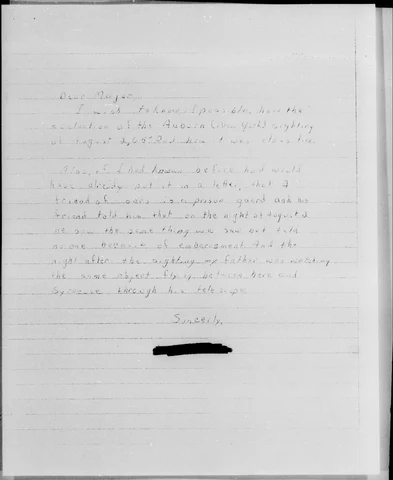 Dear Major,
I wish to know if possible, have the
evaluation of the Auburn (New York) sighting
of August 2, 65 and how it was
Also, if I had known before had would
have already put it in a letter, that a
friend of ours is a prison guard and his
friend told him that on the night of August 2
he saw the same thing we saw but told
no one because of embarassment. And the
night after the sighting my father was watching
the same object fly in between here and
Syracuse through his telescope.
Sincerly,